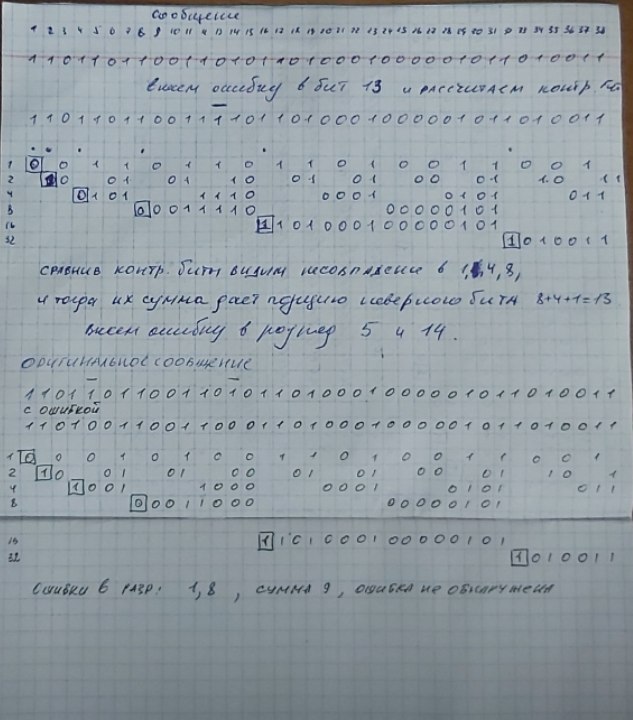 Сообщение
1 2 3 4 5 6 7 8 9 10 11
1 1 0 1 1 0 1 1 0 0 1 1 0 1 0 1 1 0 1 0 0 0 1 0 0 0 0 0 1 0 1 1 0 1 0 0 1 1
внесем ошибку в бит 13 и рассчитаем контр.
1 1 0 1 1 0 1 1 0 0 1 1 1 1 0 1 1 0 1 0 0 0 1 0 0 0 0 0 1 0 1 1 0 1 0 0 1 1
1 0 0 1 1 0 1 1 0 1 1 0 1 0 0 1 1 0 0 1
2 0 01 01 10 01 01 00 01 10 11
4 0 1 0 1 1 1 1 0 0 0 0 1 0 1 0 1 0 1 1
8 0 0 0 1 1 1 1 0 0 0 0 0 0 1 0 1
16 1 1 0 1 0 0 0 1 0 0 0 0 0 1 0 1
32 1 0 1 0 0 1 1
сравнив контр. биты видим несовпадение в 1, 4, 8,
и тогда их сумма дает позицию неверного бита 8+4+1=13
внесем ошибку в розряд 5 и 14.
оригинальное сообщение
1 1 0 1 1 0 1 1 0 0 1 1 0 1 0 1 1 0 1 0 0 0 1 0 0 0 0 0 1 0 1 1 0 1 0 0 1 1
с ошибкой
1 1 0 1 0 0 1 1 0 0 1 1 0 0 0 1 1 0 1 0 0 0 1 0 0 0 0 0 1 0 1 1 0 1 0 0 1 1
1 0 0 0 1 0 1 0 0 1 1 0 1 0 0 1 1 0 0 1
2 1 0 01 01 00 01 01 00 01 10 1
4 1 0 0 1 1 0 0 0 0 0 0 1 0 1 0 1 0 1 1
8 0 0 0 1 1 0 0 0 0 0 0 0 0 1 0 1
1 1 0 1 0 0 0 1 0 0 0 0 0 1 0 1
32 1 0 1 0 0 1 1
Ошибки в разр: 1, 8, сумма 9, ошибка не обнаружена